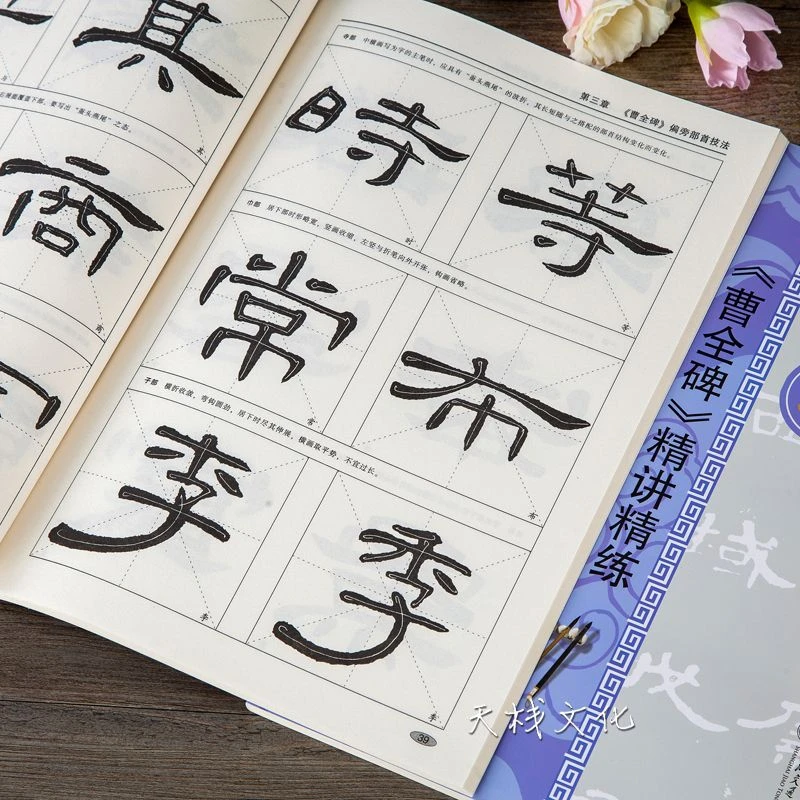 第三章 《曹全碑》偏旁部首技法
寺部 中横画写为字的主笔时，应具有“蚕头燕尾”的波折，其长短随与之搭配的部首结构变化而变化。
時 等
时 等
巾部 居下部时形略宽，竖画收缩，左竖与折笔向外开张，钩画省略。
常 布
常 布
子部 横折收敛，弯钩圆劲，居下时尽其伸展，横画取平势，不宜过长。
李 季
李 季
39
其
其
覆盖下部，要写出“蚕头燕尾”之态。
商
商
《曹全碑》精讲精练
天栈文化